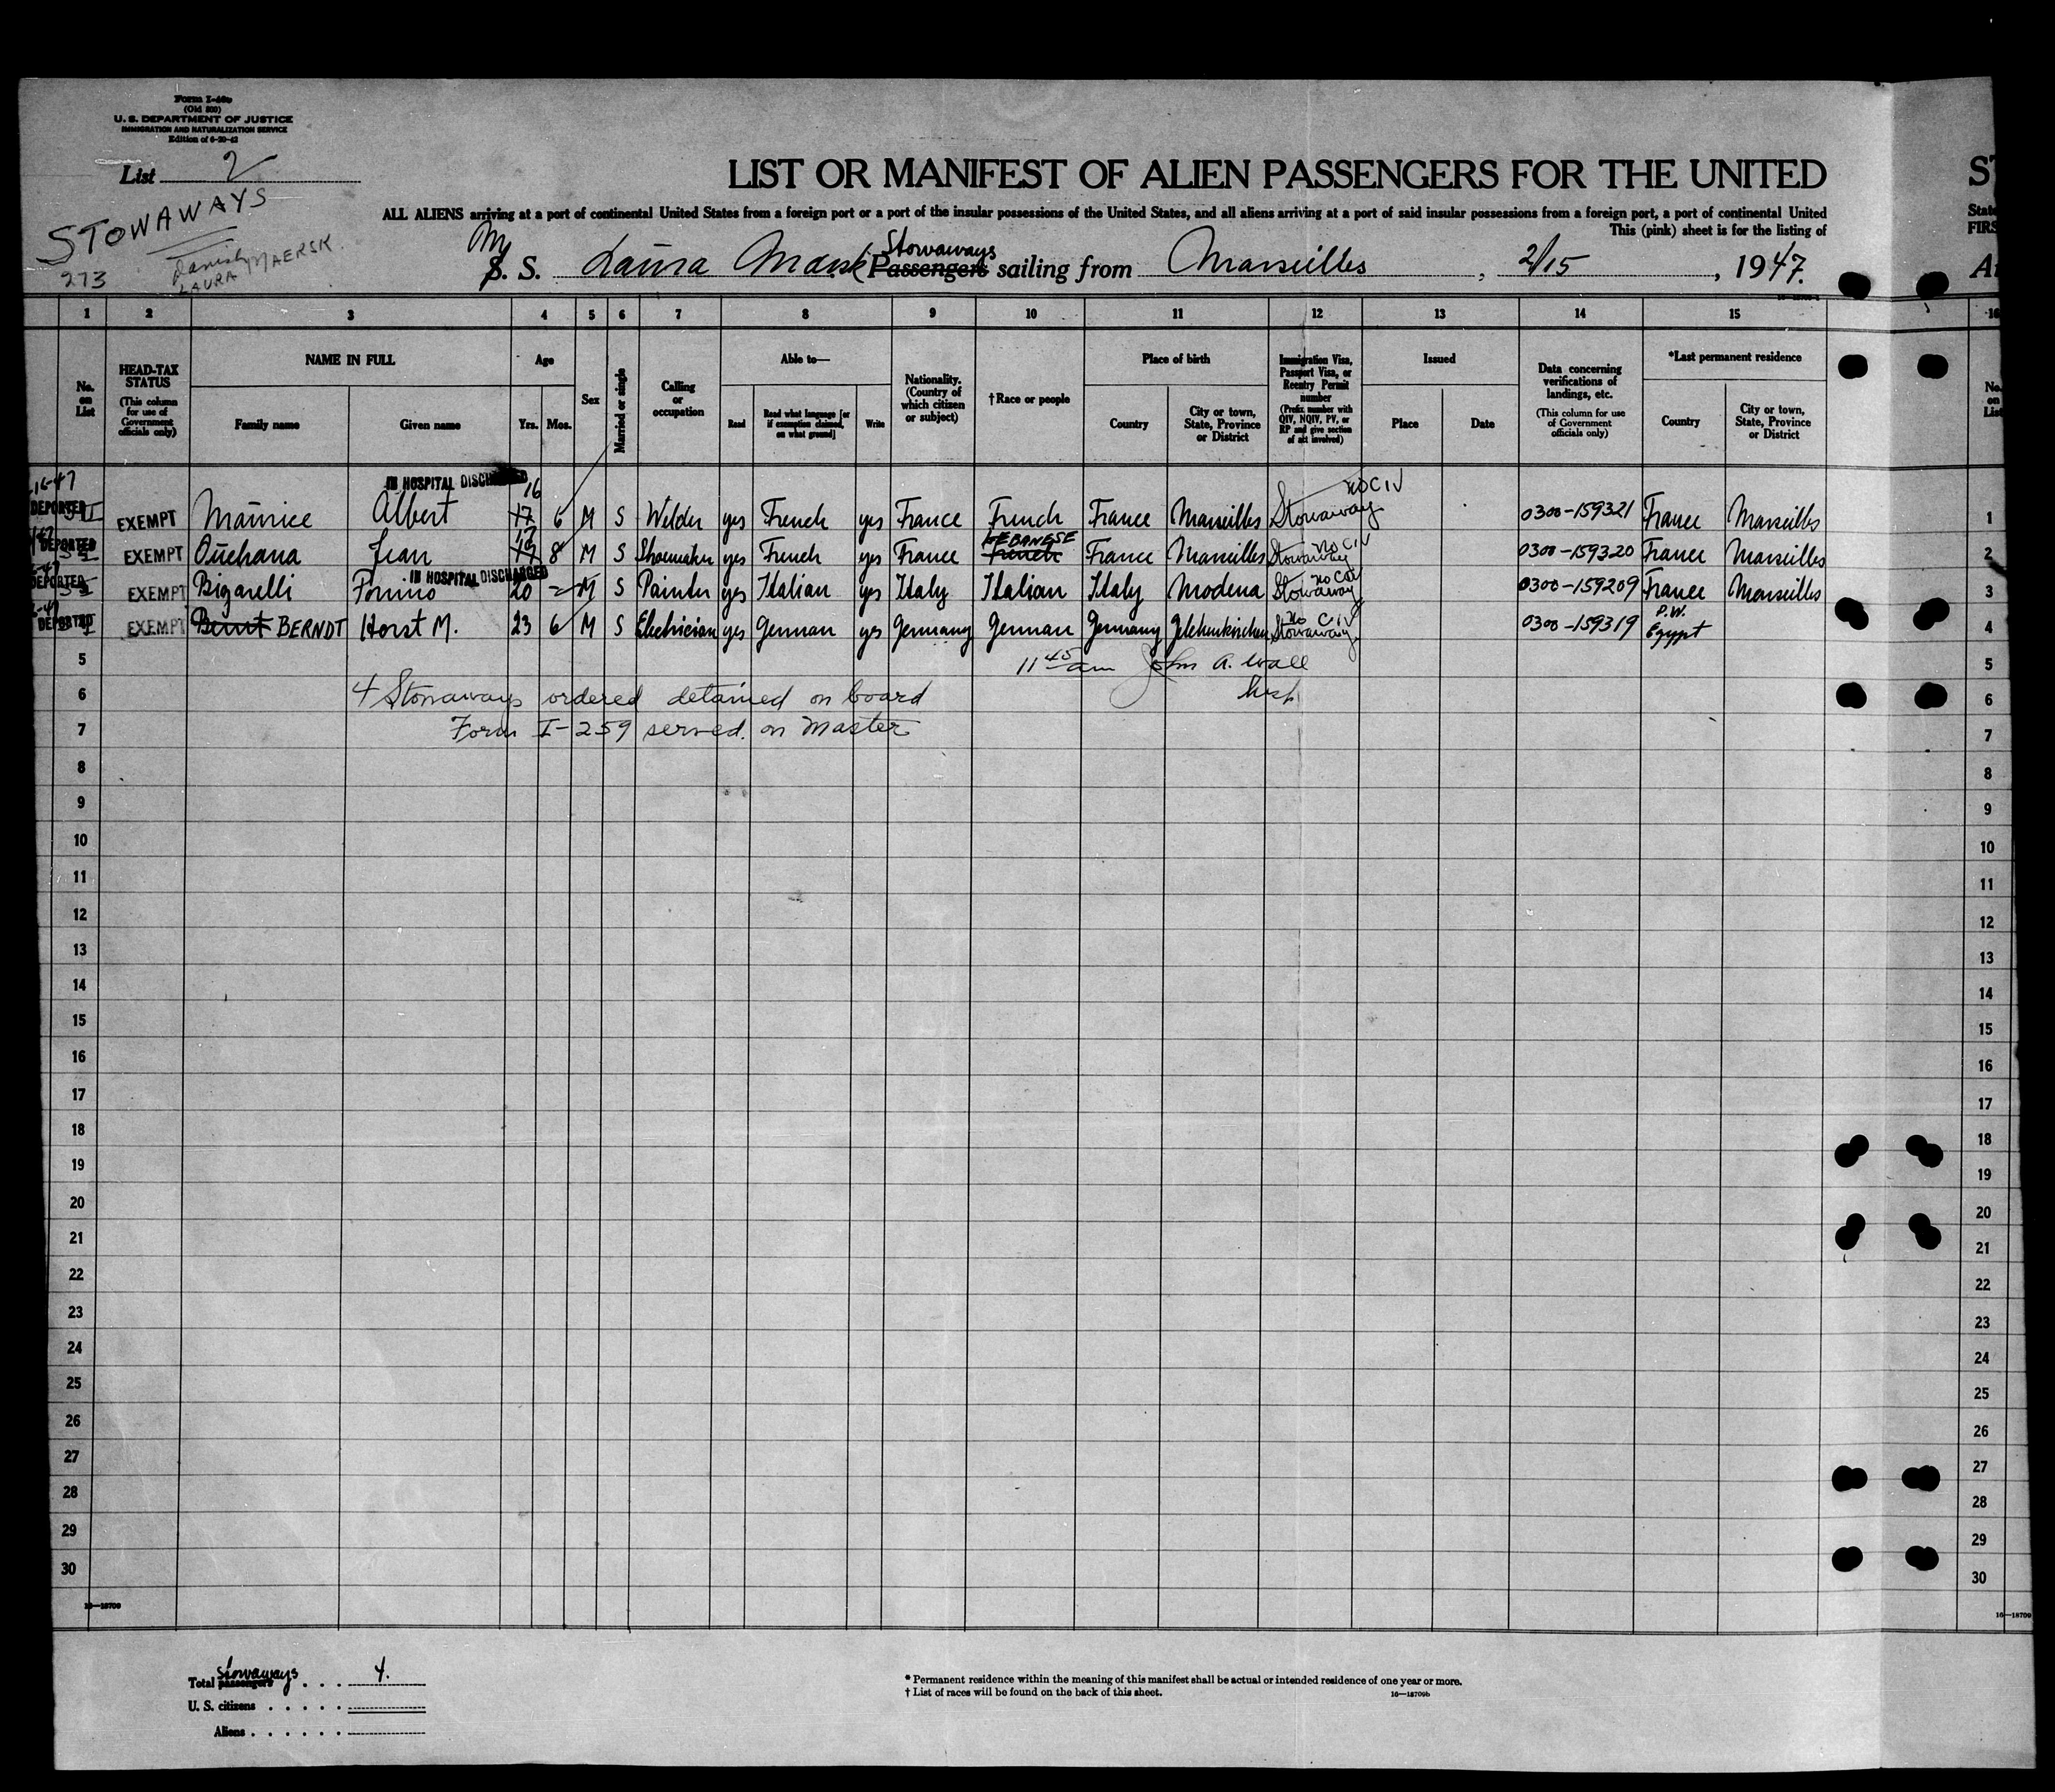 Form I-
(Old 500)
U. S. DEPARTMENT OF JUSTICE
IMMIGRATION AND NATURALIZATION SERVICE
Edition of 6-20-42
List 2
STOWAWAYS
273
Danish
LAURA MAERSK.
LIST OR MANIFEST OF ALIEN PASSENGERS FOR THE UNITED
ALL ALIENS arriving at a port of continental United States from a foreign port or a port of the insular possessions of the United States, and all aliens arriving at a port of said insular possessions from a foreign port, a port of continental United
This (pink) sheet is for the listing of
Stowaways
S. S. Laura Marsk Passengers sailing from Marseilles, 2/15, 1947.
1 2 3 4 5 6 7 8 9 10 11 12 13 14 15
No. on List
HEAD-TAX STATUS
(This column for use of Government officials only)
NAME IN FULL
Family name
Given name
Age
Yrs.
Mos.
Sex
Married or single
Calling or occupation
Able to—
Read
Read what language [or if exemption claimed, on what ground]
Write
Nationality. (Country of which citizen or subject)
†Race or people
Place of birth
Country
City or town, State, Province or District
Immigration Visa, Passport Visa, or Reentry Permit number
(Prefix number with QIV, NQIV, PV, or RP and give section of act involved)
Issued
Place
Date
Data concerning verifications of landings, etc.
(This column for use of Government officials only)
*Last permanent residence
Country
City or town, State, Province or District
No. on List
IN HOSPITAL DISCHARGED
16 NO CIV
DEPORTED EXEMPT Maurice Albert 17 6 M S Welder yes French yes France French France Marseilles Stowaway 0300-159321 France Marseilles 1
17 LEBANESE NO CIV
DEPORTED EXEMPT Ouchana Jean 19 8 M S Shoemaker yes French yes France French France Marseilles Stowaway 0300-159320 France Marseilles 2
IN HOSPITAL DISCHARGED
DEPORTED EXEMPT Bigarelli 20 - M S Painter yes Italian yes Italy Italian Italy Modena Stowaway 0300-159209 France Marseilles 3
No CIV P.W.
DEPORTED EXEMPT Bernt BERNDT Horst M. 23 6 M S Electrician yes German yes Germany German Germany Stowaway 0300-159319 Egypt 4
5 11 45 am John A. Wall
6 4 Stowaways ordered detained on board Insp 6
7 Form I-259 served on Master 7
8 8
9 9
10 10
11 11
12 12
13 13
14 14
15 15
16 16
17 17
18 18
19 19
20 20
21 21
22 22
23 23
24 24
25 25
26 26
27 27
28 28
29 29
30 30
16—18709
16—18709
Stowaways
Total passengers . . . 4.
U. S. citizens . . . . .
Aliens . . . . . .
* Permanent residence within the meaning of this manifest shall be actual or intended residence of one year or more.
† List of races will be found on the back of this sheet.
16—18709b